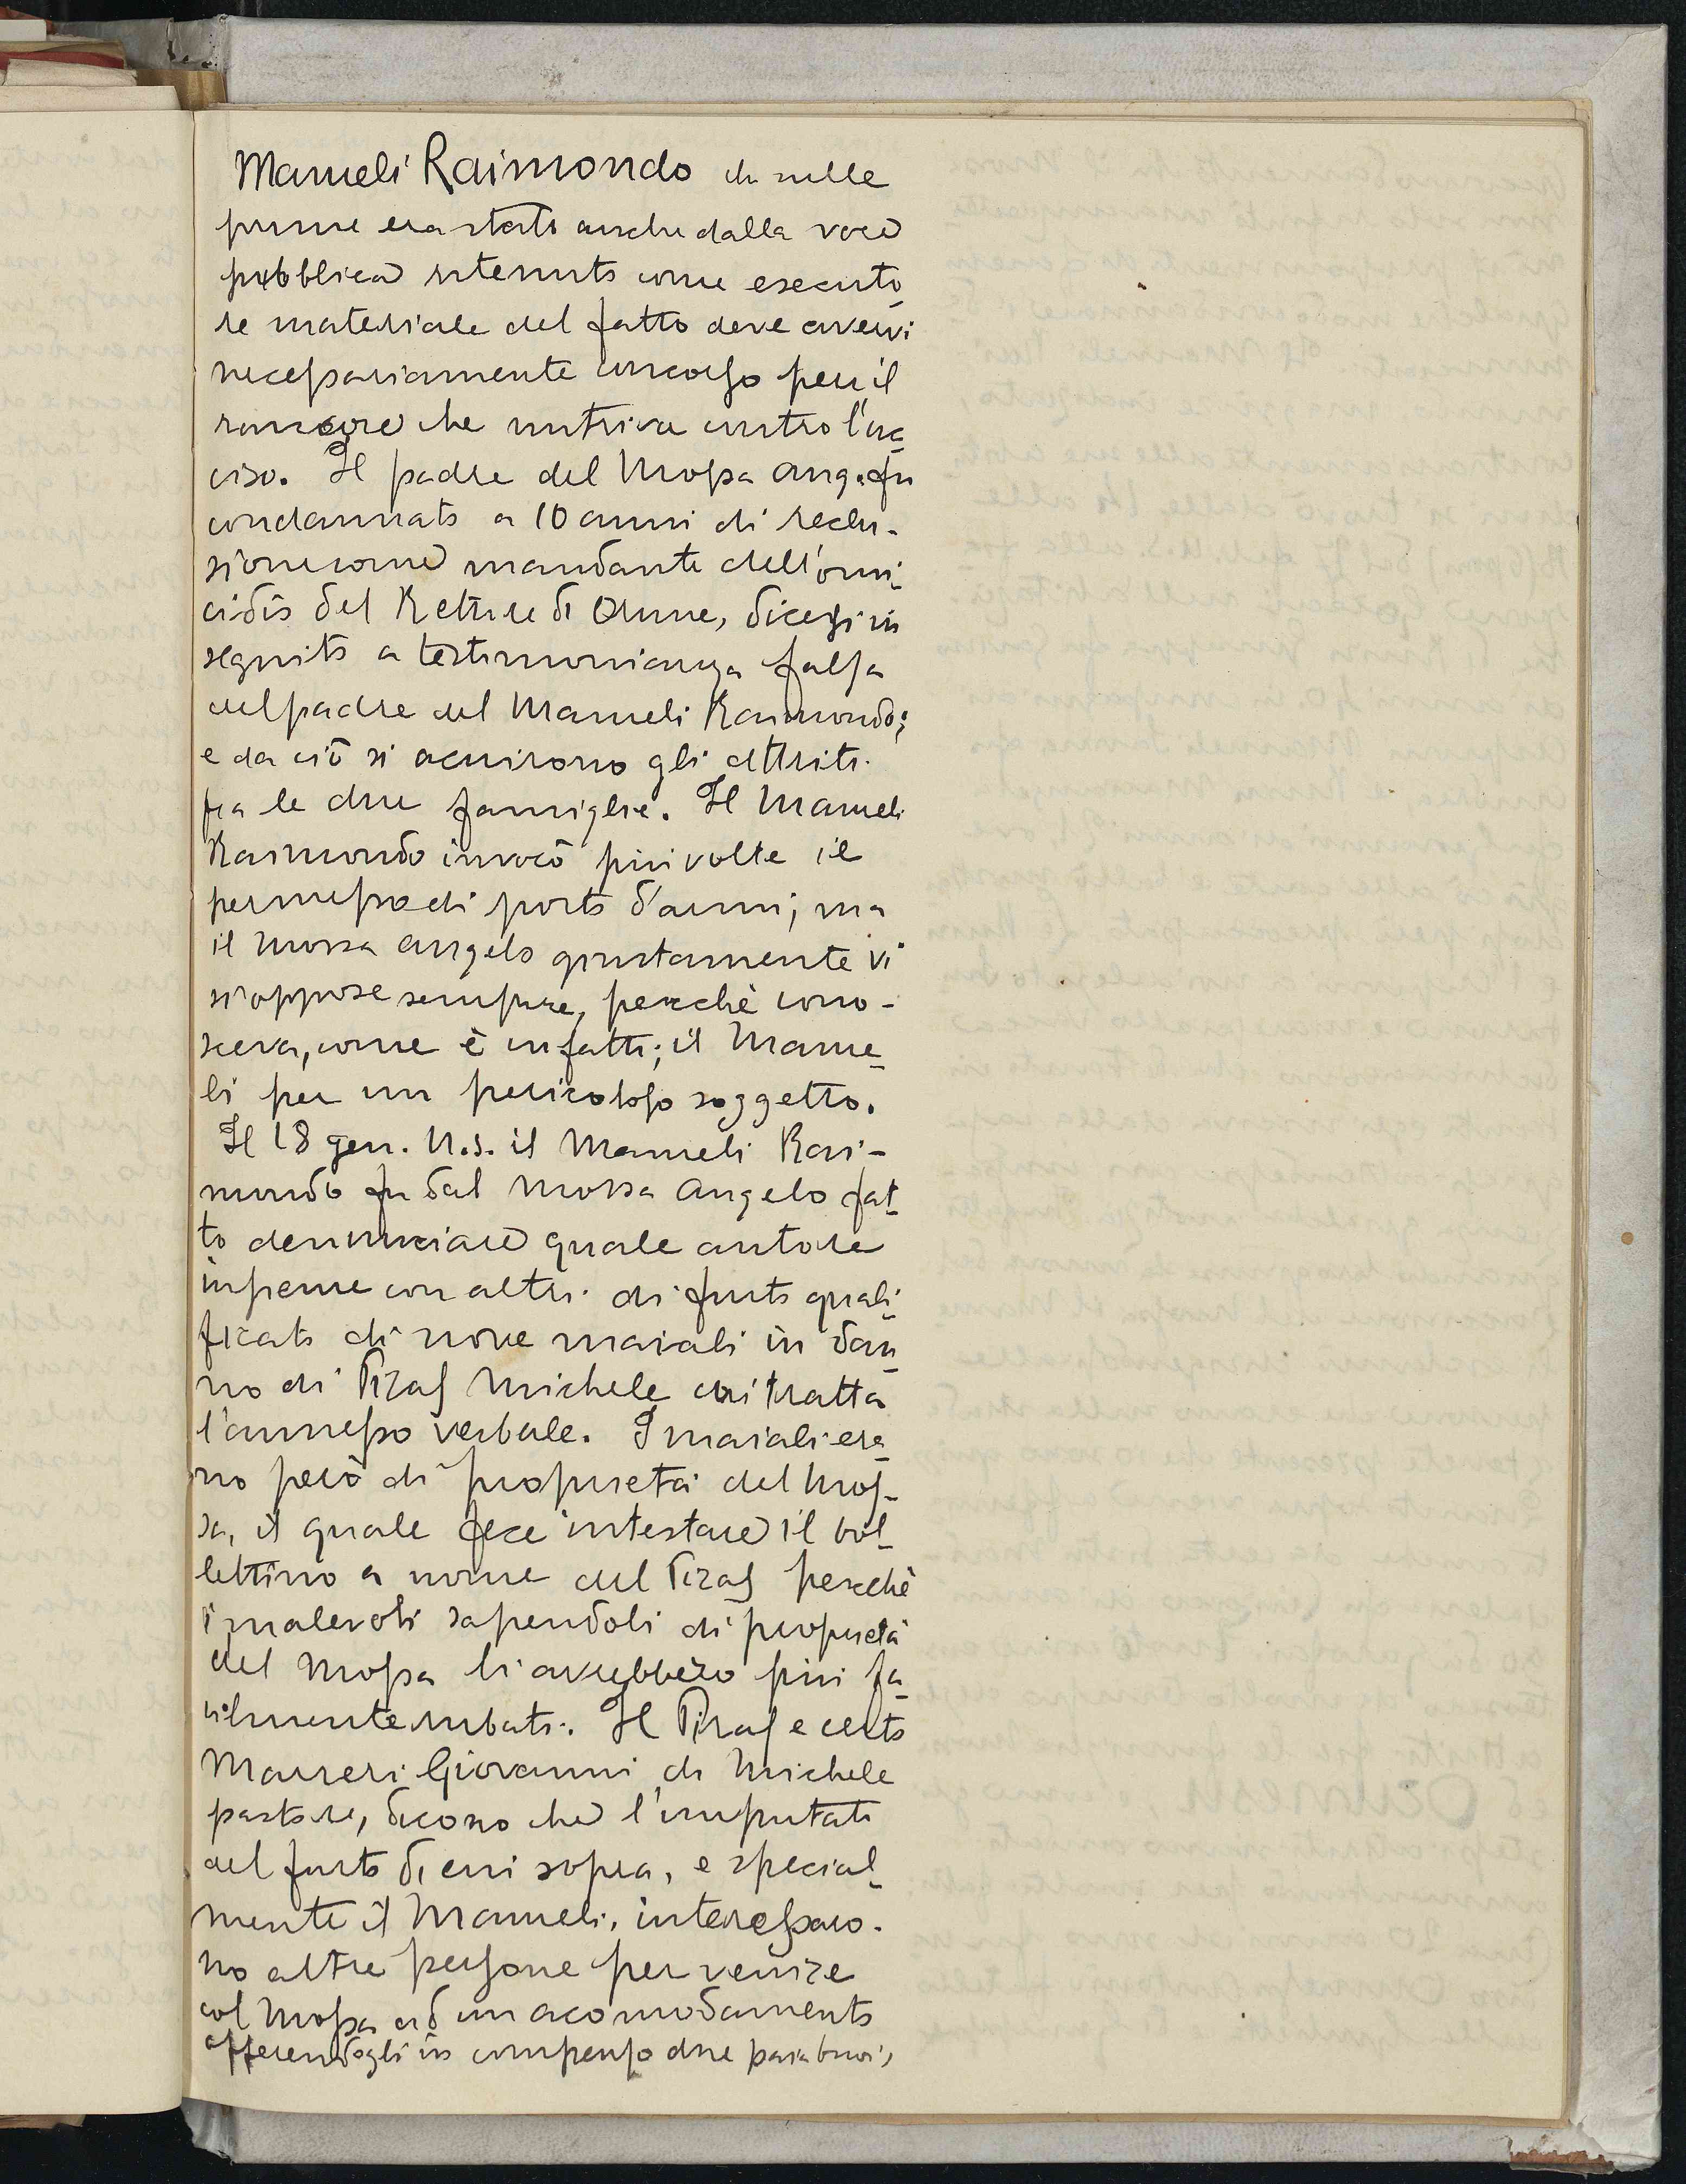 Mameli Raimondo che sulle
prime era stato anche dalla voce
pubblica ritenuto come esecuto-
re materiale del fatto deve avervi
necessariamente concorso per il
rancore che nutriva contro l'uc-
ciso. Il padre del Mossa Ang. fu
condannato a 10 anni di reclu-
sione come mandante dell'omi-
cidio del Rettore di Orune, dicesi in
seguito a testimonianza falsa
del padre del Mameli Raimondo;
e da ciò si acuirono gli attriti
fra le due famiglie. Il Mameli
Raimondo invocò più volte il
permesso di porto d'armi; ma
il Mossa Angelo giustamente vi
si oppose sempre, perchè cono-
sceva, come è infatti; il Mame-
li per un pericoloso soggetto.
Il 18 gen. u.s. il Mameli Rai-
mondo fu dal Mossa Angelo fat-
to denunciare quale autore
insieme con altri di furto quali-
ficato di nove maiali in dan-
no di Piras Michele cui tratta
l'annesso verbale. I maiali era-
no però di proprietà del Mos-
sa, il quale fece intestare il bol-
lettino a nome del Piras perchè
i malevoli sapendoli di proprietà
del Mossa li avrebbero più fa-
cilmente rubati. Il Piras e certo
Marreri Giovanni di Michele
pastore, dicono che l'imputati
del furto di cui sopra, e special-
mente il Mameli, interessaro-
no altre persone per venire
col Mossa ad un acomodamento
offerendogli in compenso due paia buoi,